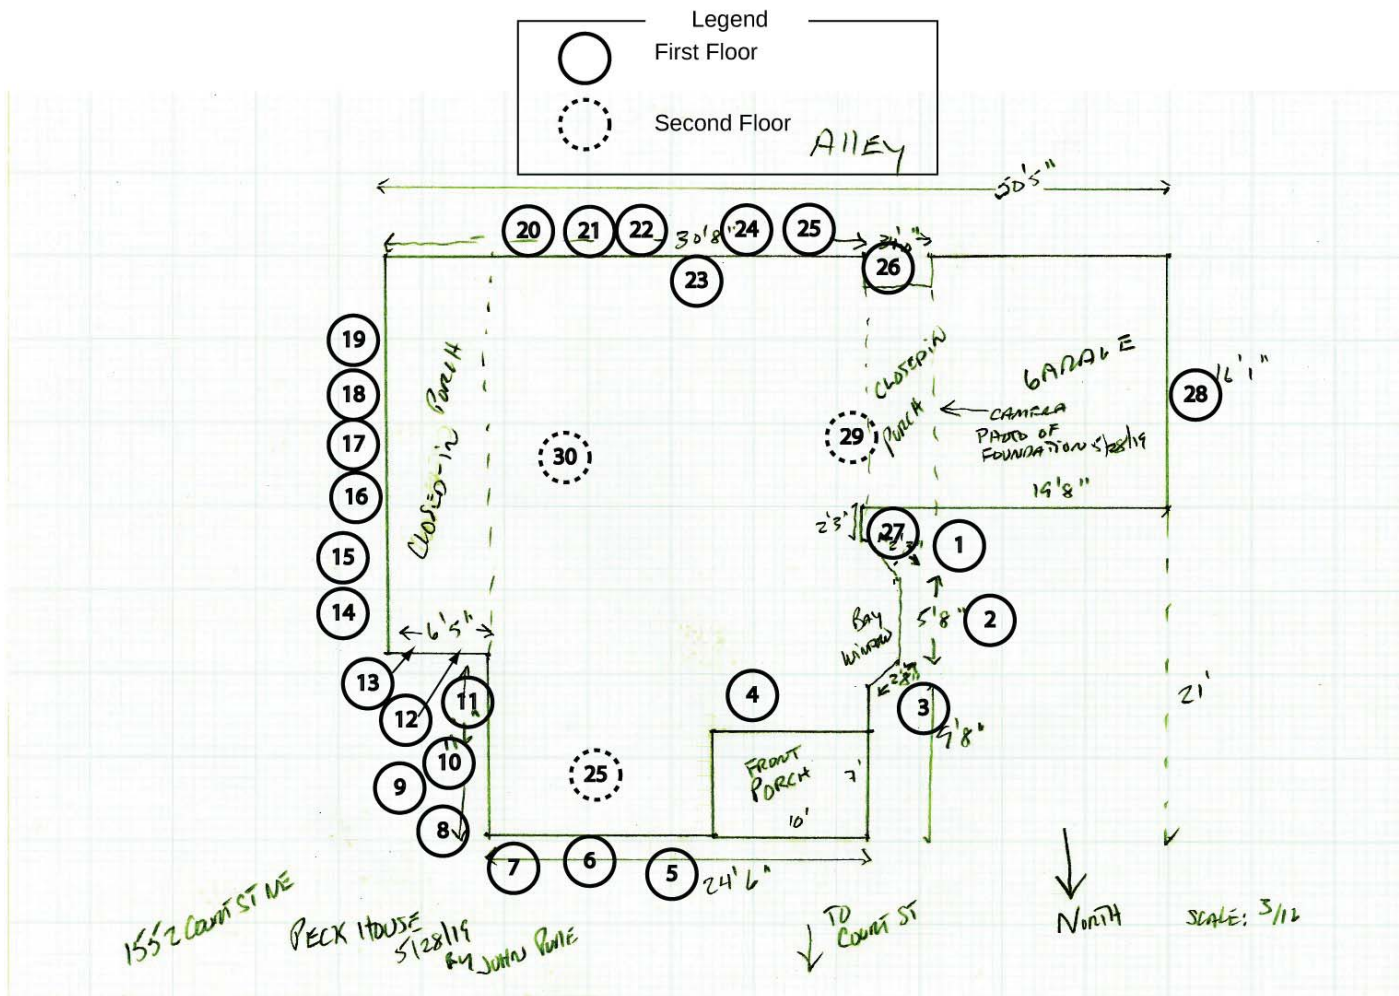 Legend
First Floor
Second Floor
Alley
50'5"
20 21 22 30'8" 24 25
26
23
19
18
17
16
15
14
CLOSED-IN PORCH
CLOSEDIN PORCH
GARAGE
16'1"
28
CAMERA
PHOTO OF
FOUNDATION 5/28/19
19'8"
29
30
2'3"
27
1
5'8"
2
BAY
WINDOW
6'5"
13
12
11
4
3
21'
10
9
8
25
FRONT
PORCH
7'
10'
7
6
5
24'6"
1552 COURT ST NE
PECK HOUSE
5/28/19
BY JOHN
TO
COURT ST
NORTH
SCALE: 3/12